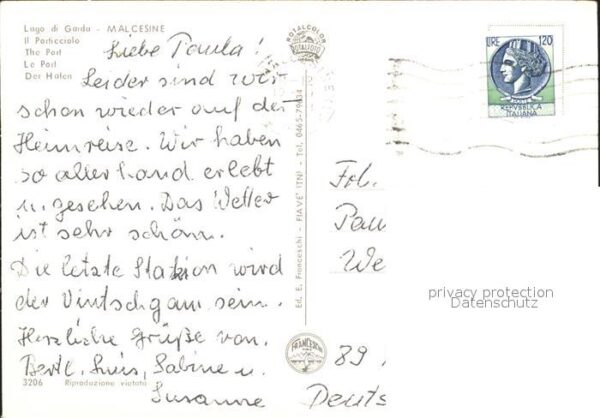 Lago di Garda - MALCESINE
Il Porticciolo
The Port
Le Port
Der Hafen
Liebe Paula!
Leider sind wir
schon wieder auf der
Heimreise. Wir haben
so allerhand erlebt
u. gesehen. Das Wetter
ist sehr schön.
Die letzte Station wird
der Vintschgau sein.
Herzliche Grüße von.
Bertl, Luis, Sabine u.
Susanne
3206 Riproduzione vietata
Ed. E. Franceschi - FIAVE' (TN) - Tel. 0465-79634
ROTALCOLOR
ROTALFOTO
FRANCESCHI
LIRE 120
REPVBBLICA
ITALIANA
Frl.
Pau
We
privacy protection
Datenschutz
89
Deuts